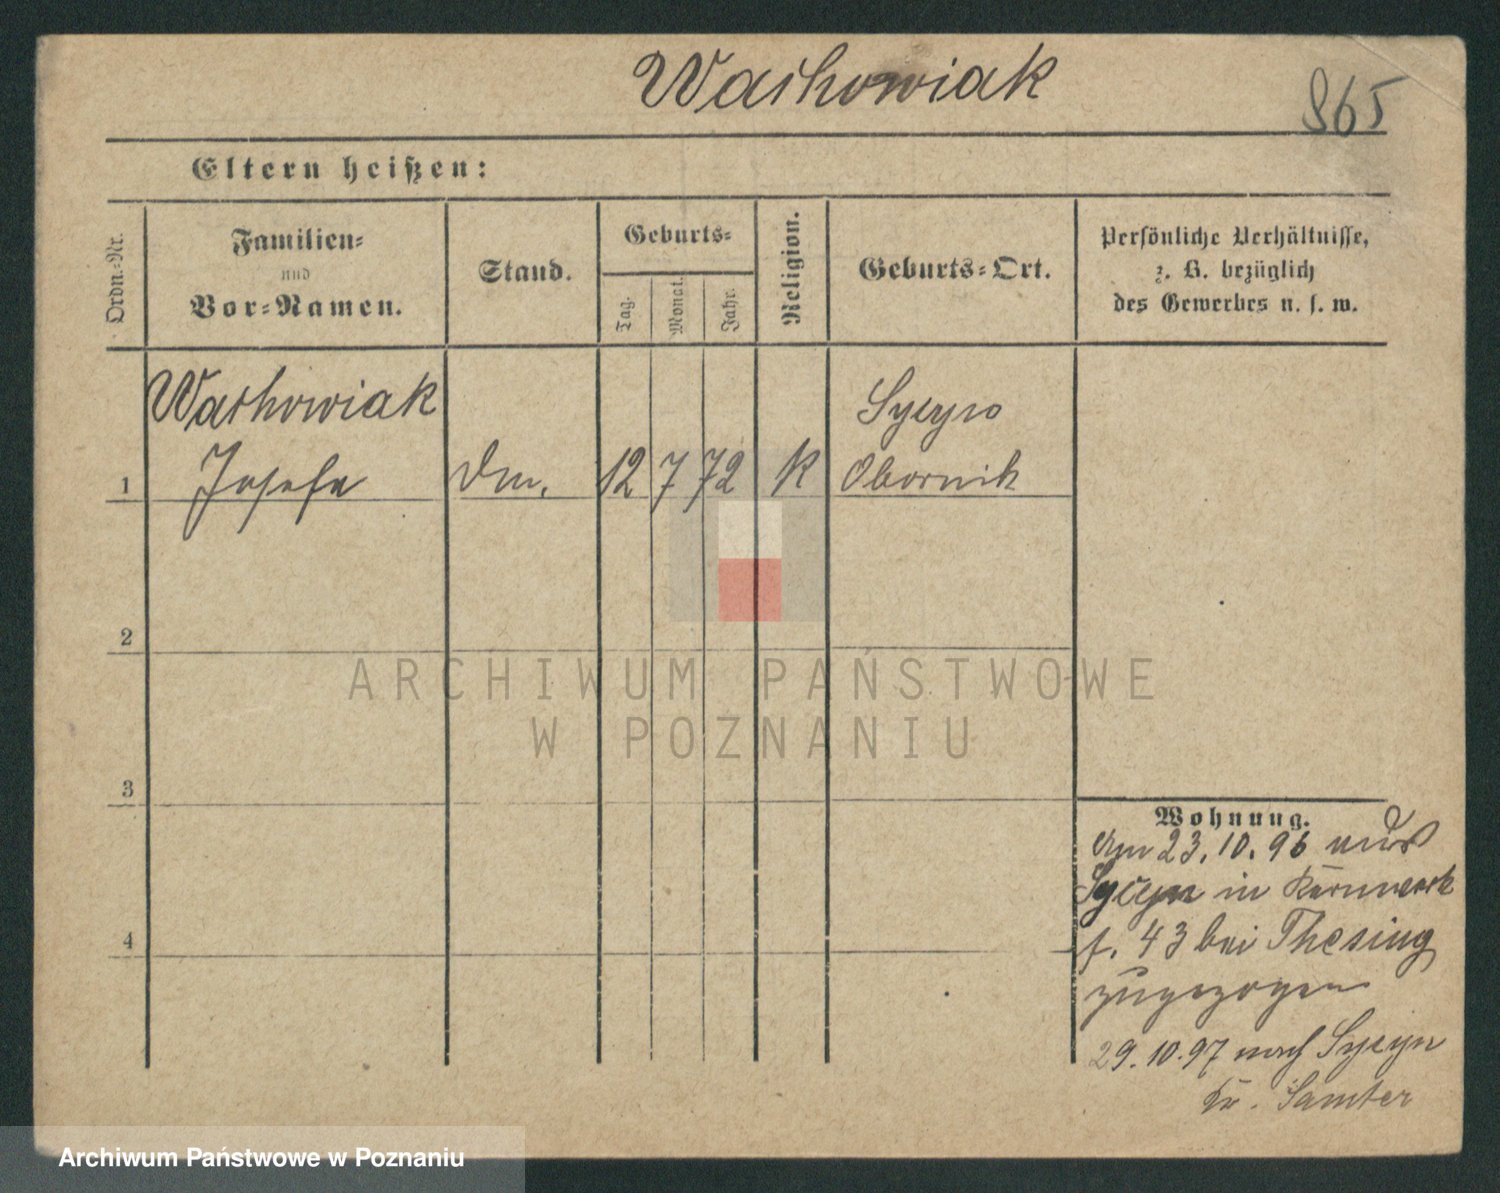 Wachowiak
865
Eltern heißen:
Ordn.-Nr.
Familien-
und
Vor-Namen.
Stand.
Geburts-
Tag.
Monat.
Jahr.
Religion.
Geburts-Ort.
Persönliche Verhältnisse,
z. B. bezüglich
des Gewerbes u. s. w.
Wachowiak
Josefa
1
Dm.
12
7
72
K
Sycyno
Obornik
2
3
4
Wohnung.
Am 23.10.96 aus
Sycyn in Kernwerk
f. 43 bei Thesing
zugezogen
29.10.97 nach Sycyn
Kr. Samter
ARCHIWUM PAŃSTWOWE
W POZNANIU
Archiwum Państwowe w Poznaniu